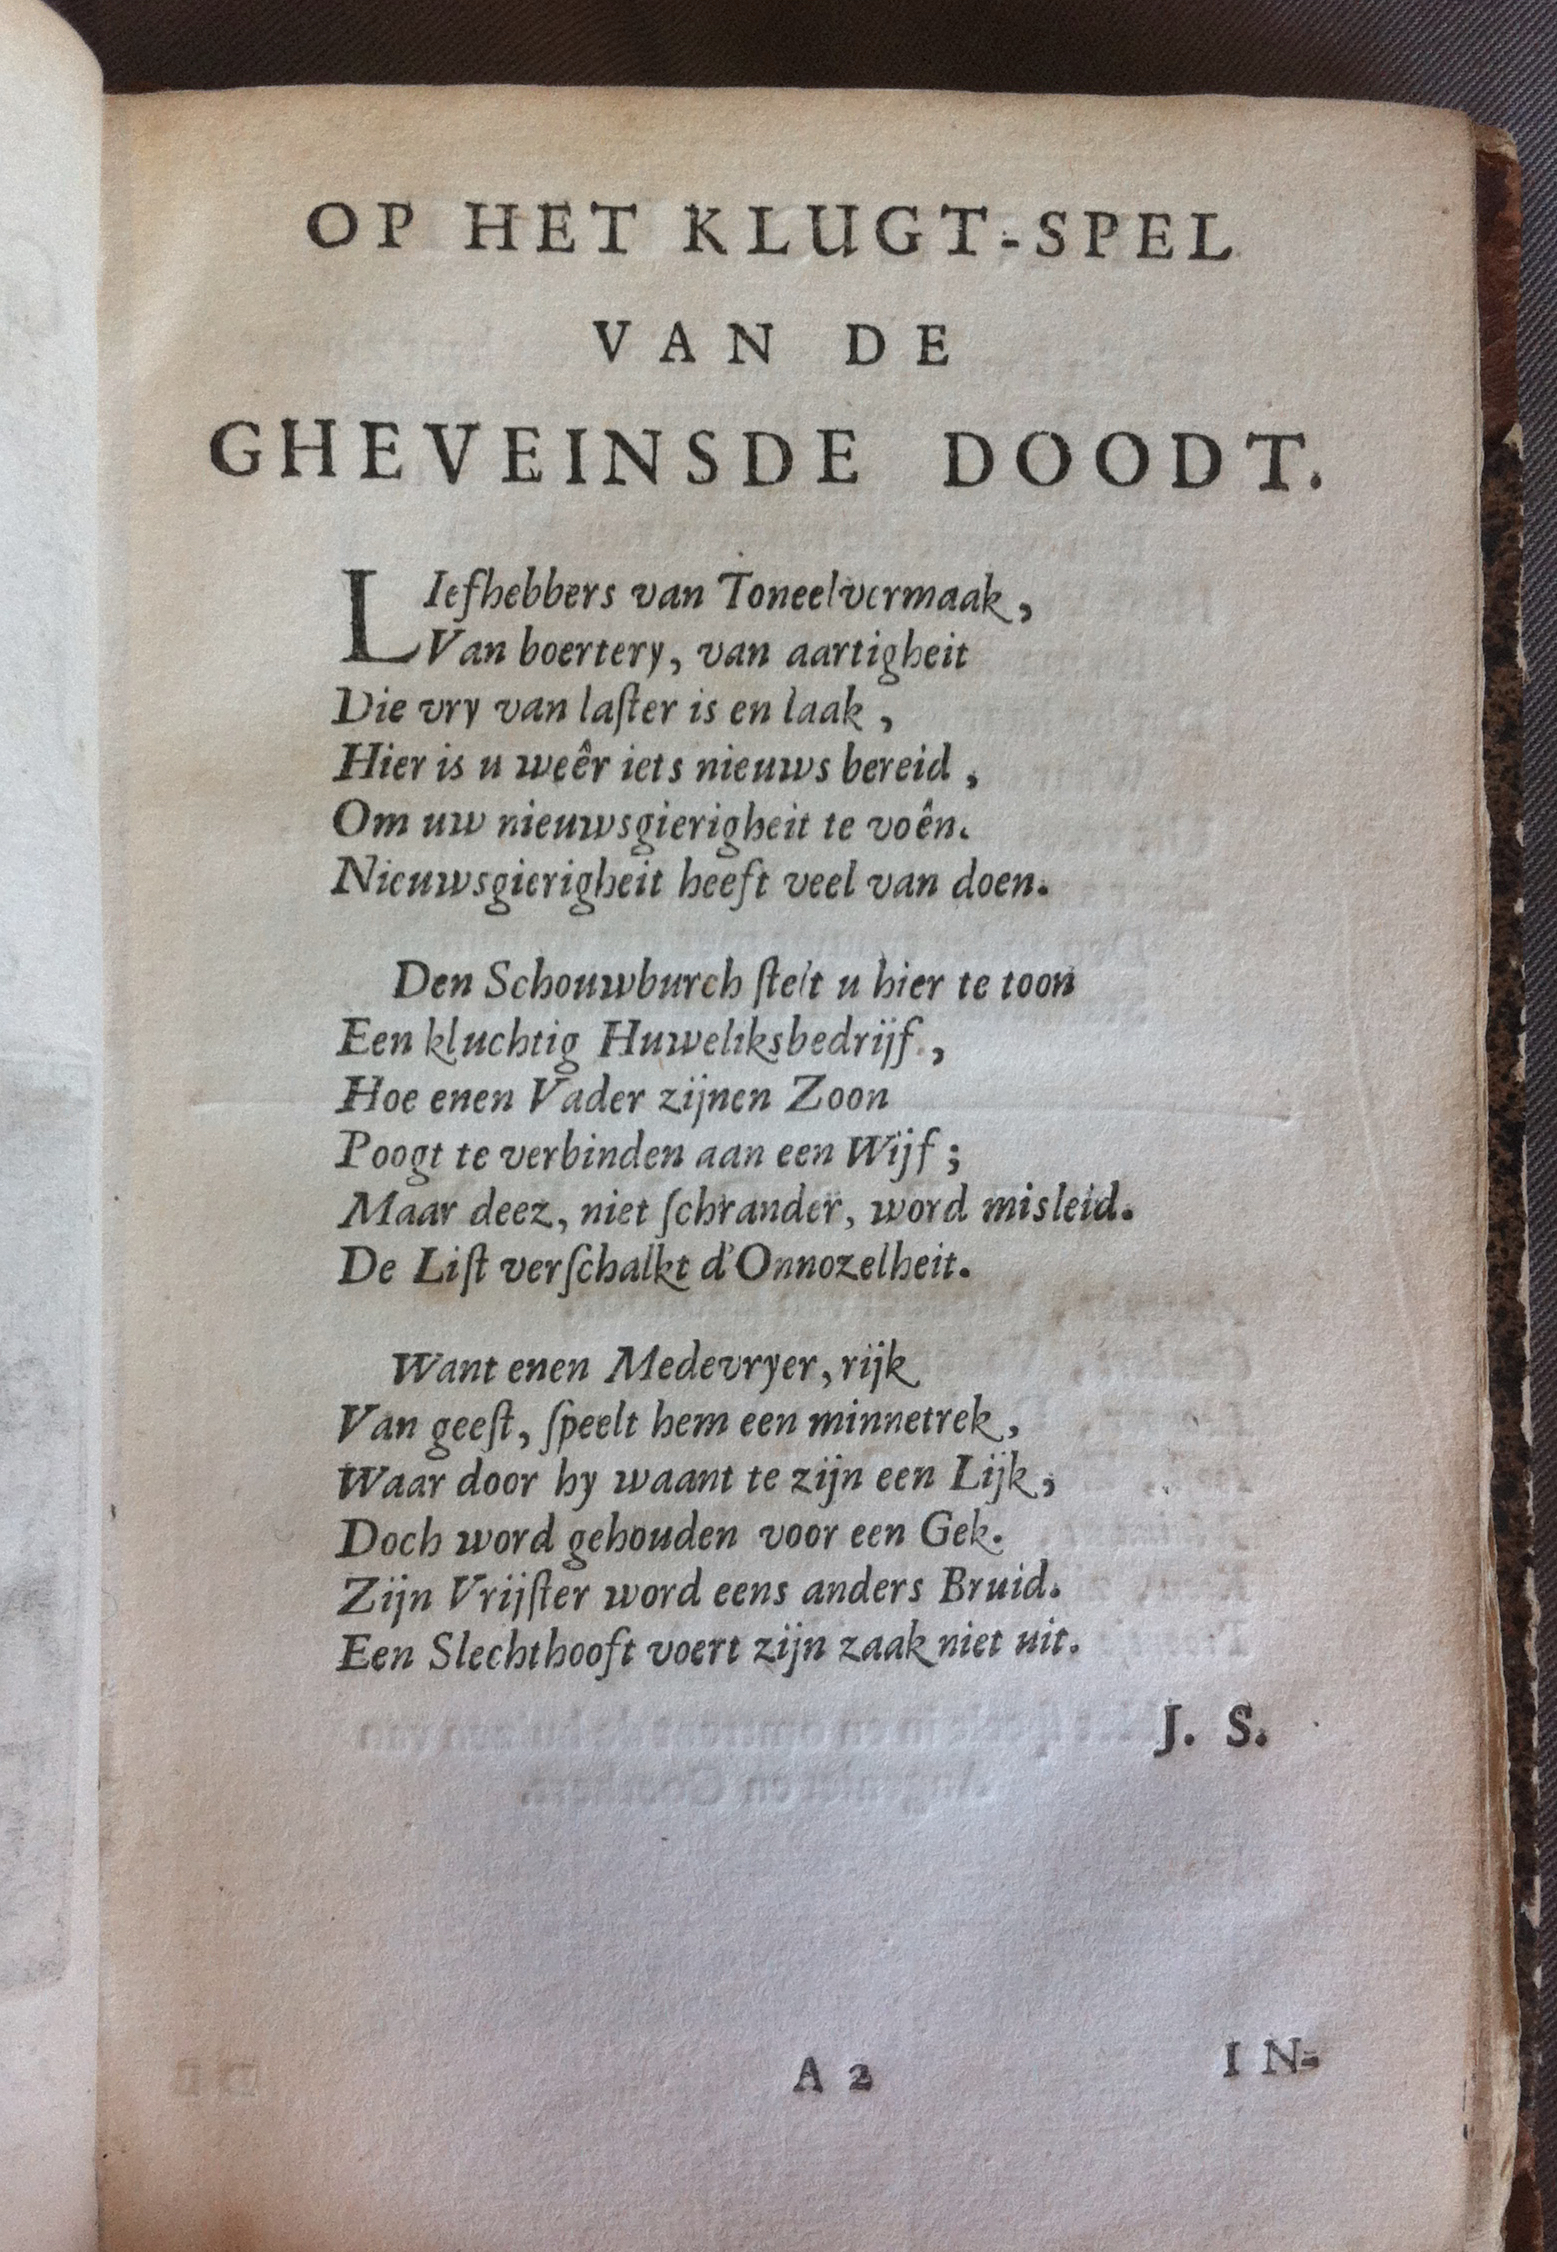 OP HET KLUGT-SPEL
VAN DE
GHEVEINSDE DOODT.
LIefhebbers van Toneelvermaak,
Van boertery, van aartigheit
Die vry van laſter is en laak,
Hier is u weêr iets nieuws bereid,
Om uw nieuwsgierigheit te voên.
Nieuwsgierigheit heeft veel van doen.
Den Schouwburch ſtelt u hier te toon
Een kluchtig Huweliksbedrijf,
Hoe enen Vader zijnen Zoon
Poogt te verbinden aan een Wijf;
Maar deez, niet ſchrander, word misleid.
De Liſt verſchalkt d'Onnozelheit.
Want enen Medevryer, rijk
Van geeſt, ſpeelt hem een minnetrek,
Waar door hy waant te zijn een Lijk,
Doch word gehouden voor een Gek.
Zijn Vrijſter word eens anders Bruid.
Een Slechthooft voert zijn zaak niet uit.
J. S.
A 2
IN-